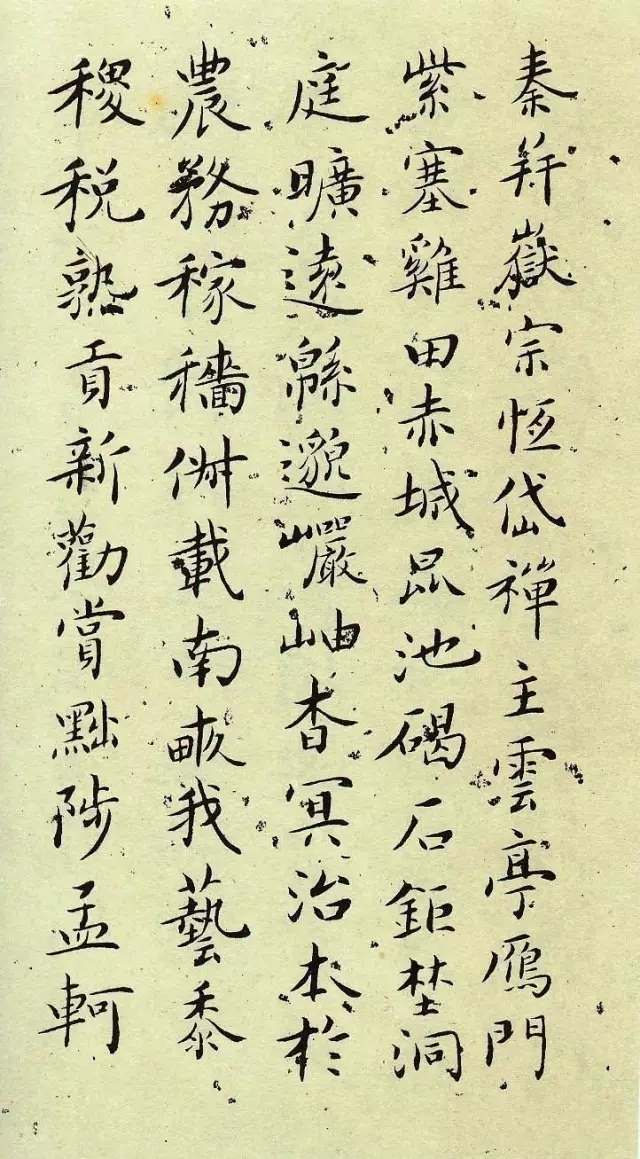 秦并嶽宗恆岱禪主雲亭鴈門
紫塞雞田赤城昆池碣石鉅埜洞
庭曠遠緜邈巖岫杳冥治本於
農務稼穡俶載南畝我藝黍
稷稅熟貢新勸賞黜陟孟軻